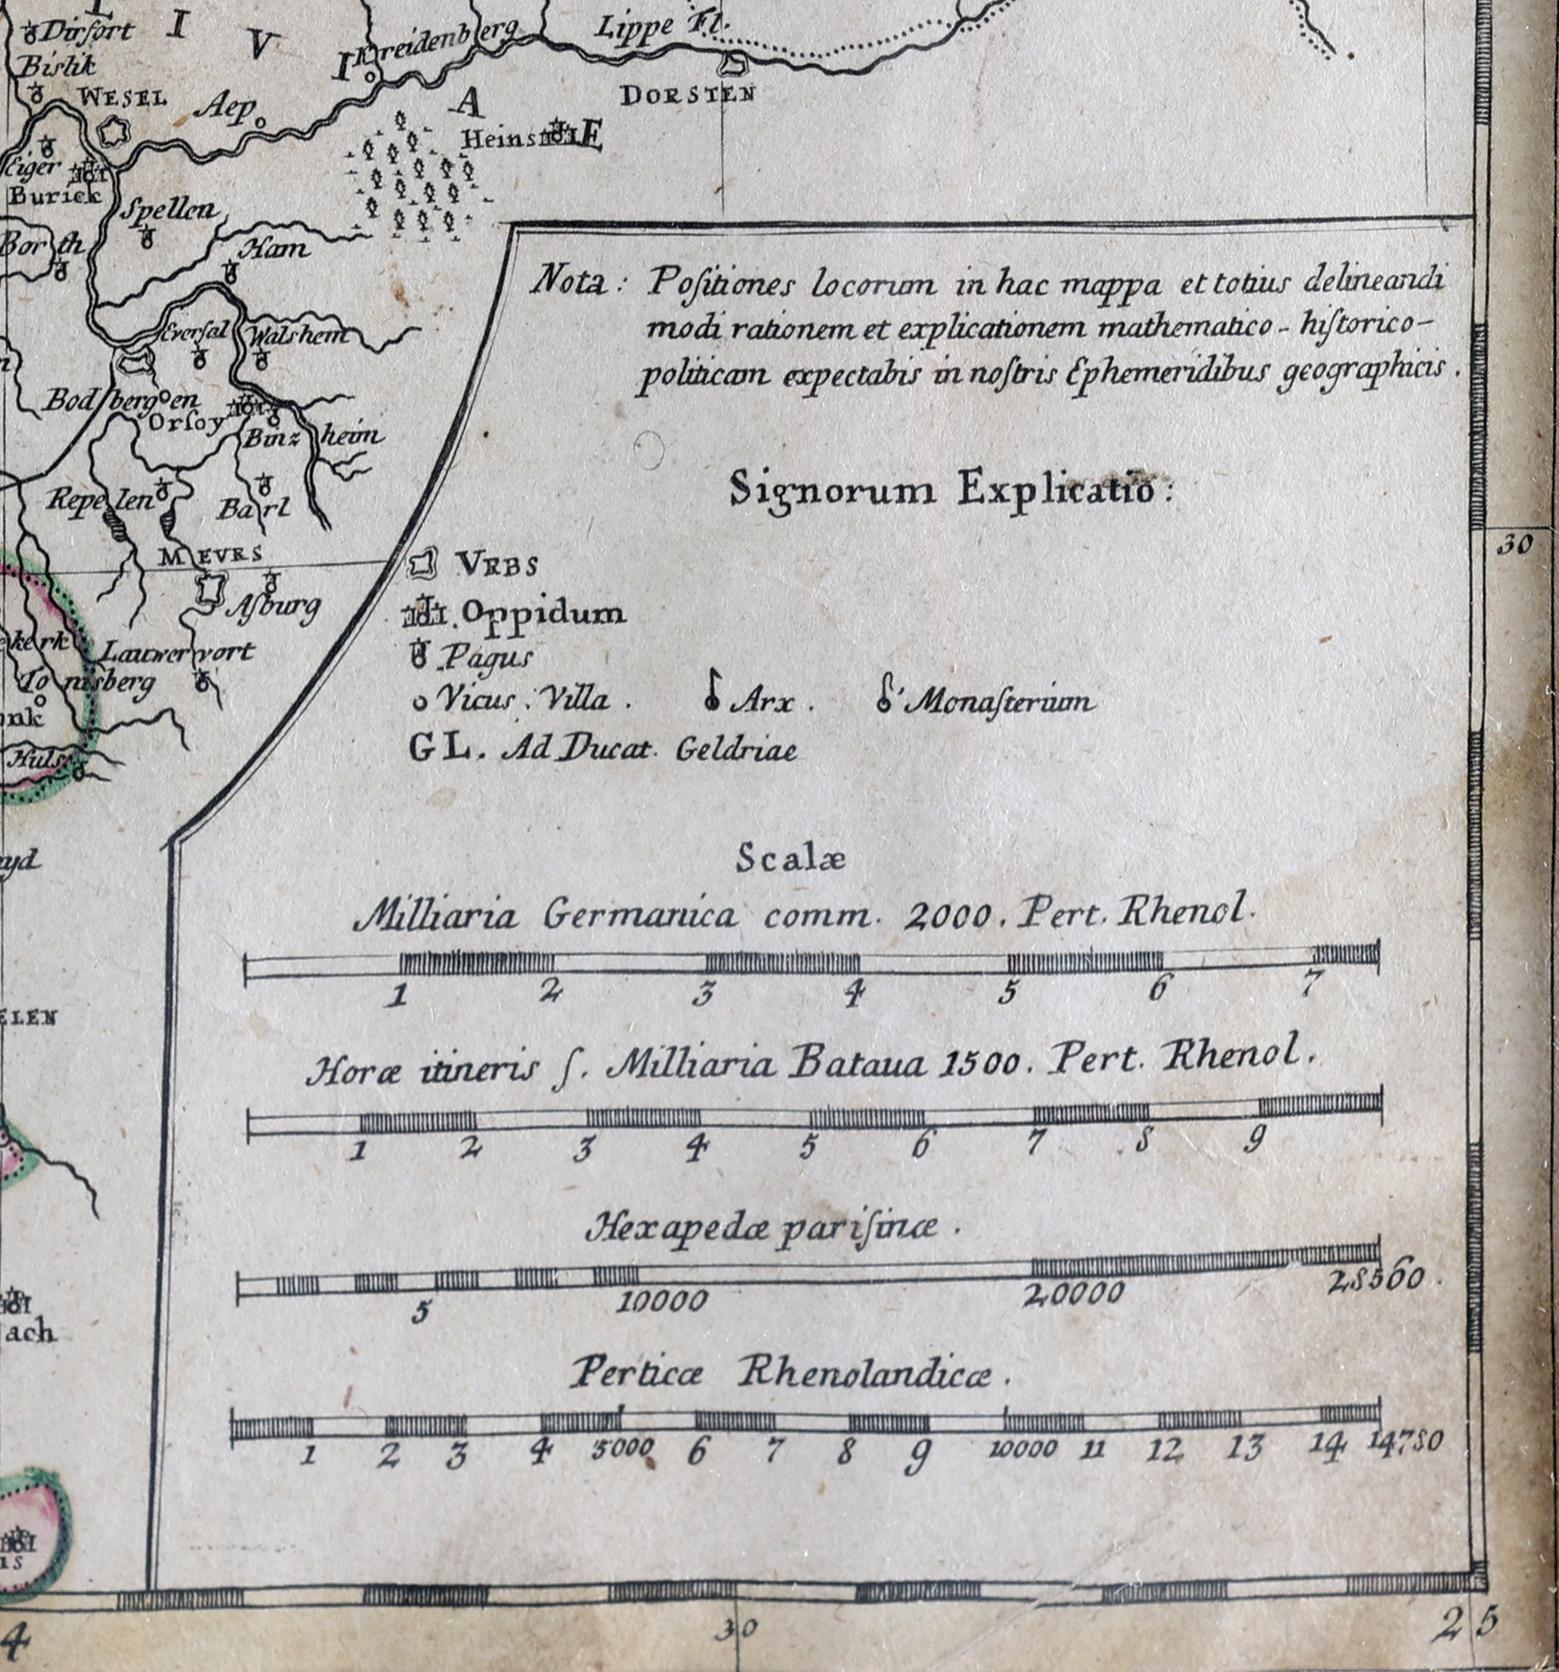 Dirſort
I V I A
Bislik
Kreidenberg
Lippe Fl.
WESEL
Aep
DORSTEN
Heins
Burick
Spellen
Borth
Ham
Everſal
Walshem
Bodbergen
Orſoy
Binzheim
Repelen
Barl
MEVRS
Aſburg
Lauwervort
Tonisberg
Huls
Nota : Poſitiones locorum in hac mappa et totius delineandi
modi rationem et explicationem mathematico - hiſtorico -
politicam expectabis in noſtris Ephemeridibus geographicis .
Signorum Explicatio :
VRBS
Oppidum
Pagus
Vicus . Villa . Arx . Monaſterium
GL. Ad Ducat. Geldriae
Scalæ
Milliaria Germanica comm. 2000. Pert. Rhenol.
1 2 3 4 5 6 7
Horæ itineris ſ. Milliaria Bataua 1500. Pert. Rhenol.
1 2 3 4 5 6 7 8 9
Hexapedæ pariſinæ .
5 10000 20000 28560 .
Perticæ Rhenolandicæ .
1 2 3 4 5000 6 7 8 9 10000 11 12 13 14 14780
30
ELEN
ach
4 30 25